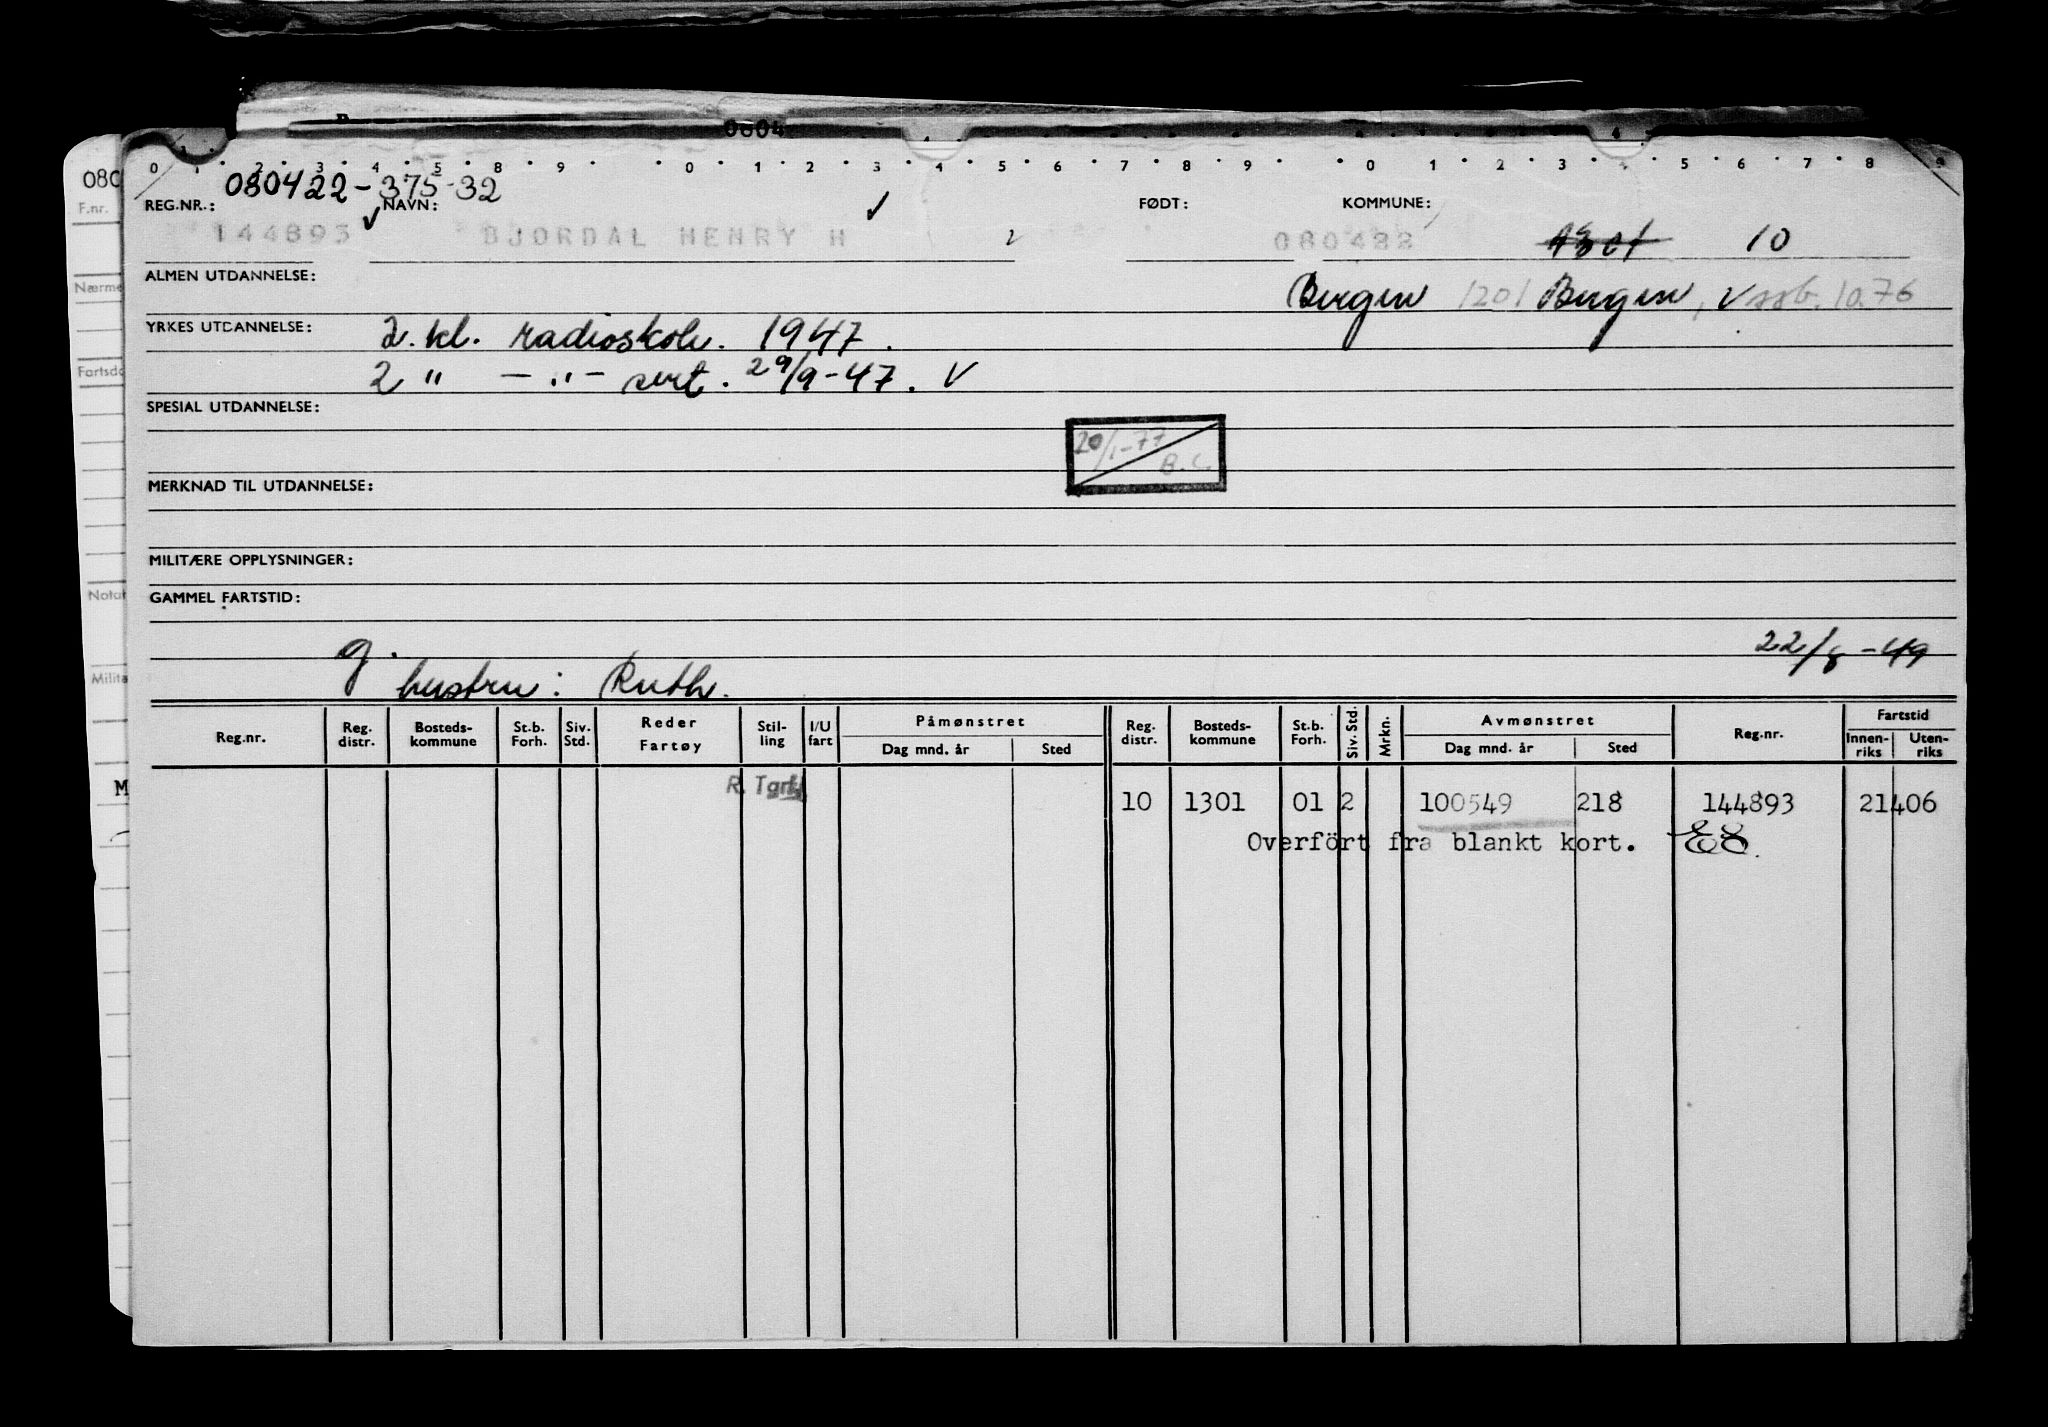 0804
0 1 2 3 4 5 8 9 0 1 2 3 4 5 6 7 8 9 0 1 2 3 4 5 6 7 8 9
080422-375-32
REG.NR.: NAVN: FØDT: KOMMUNE:
144893 BJORDAL HENRY H 080422 1301 10
ALMEN UTDANNELSE: Bergen 1201 Bergen, V ssb. 10.76
YRKES UTDANNELSE: 2. kl. radioskole. 1947.
2 " — " — sert. 29/9-47. V
SPESIAL UTDANNELSE:
20/1-77 B.C.
MERKNAD TIL UTDANNELSE:
MILITÆRE OPPLYSNINGER:
GAMMEL FARTSTID:
g. 22/8-49
hustru: Ruth.
Reg.nr. Reg. distr. Bosteds-kommune St.b. Forh. Siv. Std. Reder Fartøy Stil-ling I/U fart Påmønstret Dag mnd. år Sted Reg. distr. Bosteds-kommune St.b. Forh. Siv. Std. Mrkn. Avmønstret Dag mnd. år Sted Reg.nr. Fartstid Innen-riks Uten-riks
10 1301 01 2 100549 218 144893 21406
Overfört fra blankt kort.
080
F.nr.
Nærme
Fartsdo
Notat
Milita
M